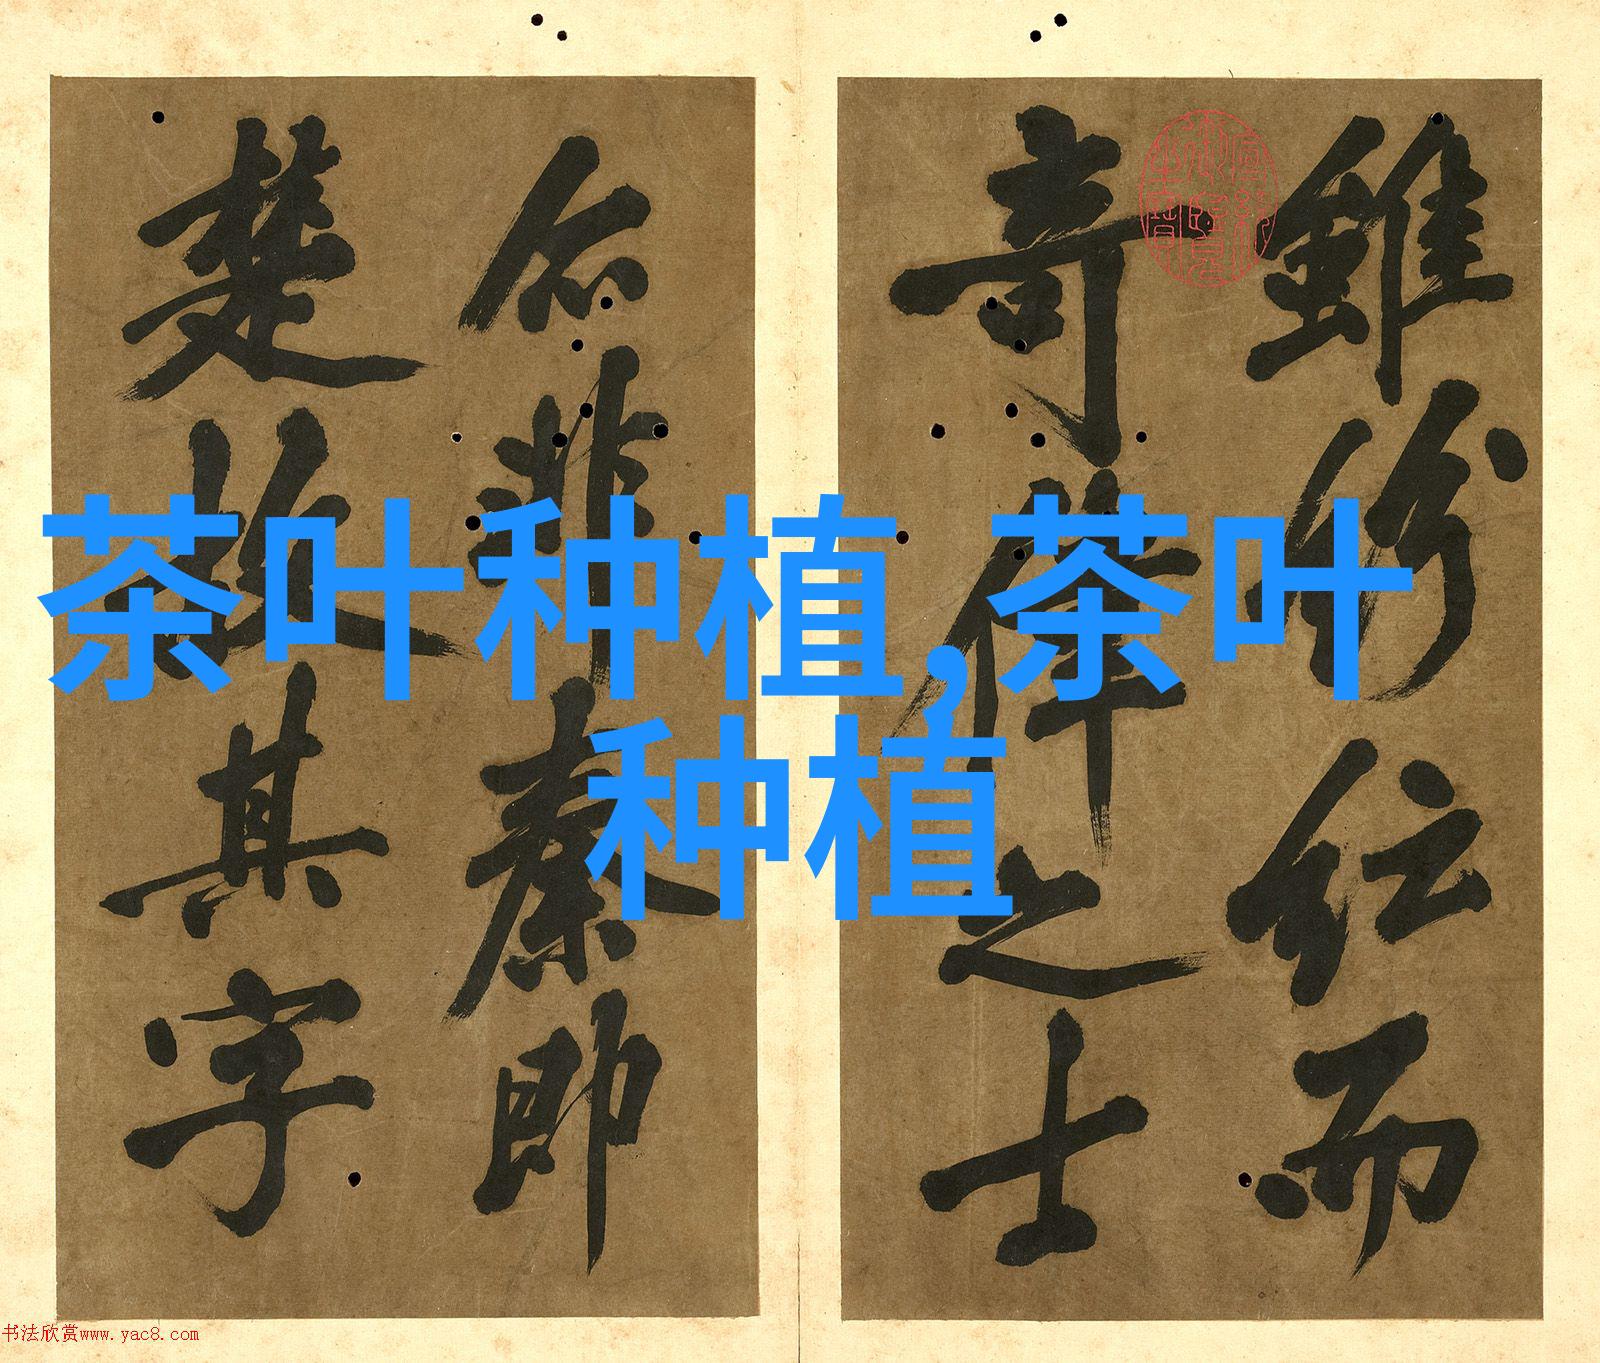 雖紛紜而
奇偉之士
非秦即
楚故其字
茶叶种植,茶叶
种植
书法欣赏www.yac8.com